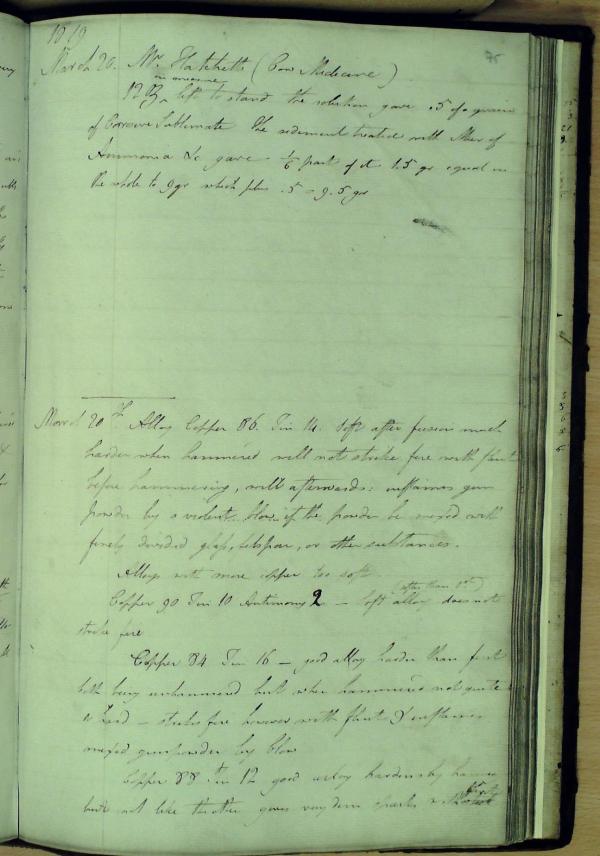 1819
75
March 20. Mr. Hatchetts (Cow Medicine)
in measure
12 ℥ left to stand the solution gave .5 of a grain
of Corrosive Sublimate the sediment treated with
Ammonia &c gave 1/6 part of it 1.5 gr equal in
the whole to 9gr which plus .5 = 9.5 grs
March 20th Alloy Copper 86. Tin 14. Soft after fusion much
harder when hammered will not strike fire with flint
before hammering, will afterwards: inflames gun
powder by a violent blow if the powder be mixed with
finely divided glass, felspar, or other substances.
Alloys with more copper too soft
(softer than 1st)
Copper 90 Tin 10 Antimony 2 - Soft alloy does not
strike fire
Copper 84 Tin 16 - good alloy harder than first
both being unhammered but when hammered not quite
so hard - strikes fire however with flint & inflames
mixed gunpowder by blow
Copper 88 Tin 12 good alloy hardens by hammer
but not like the other gives very dim sparks with